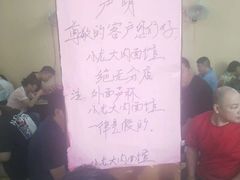 声明
尊敬的客户您们好
小龙大肉面馆
绝无分店
注：外面
小龙大肉面馆
一律是假的.
小龙大肉面馆